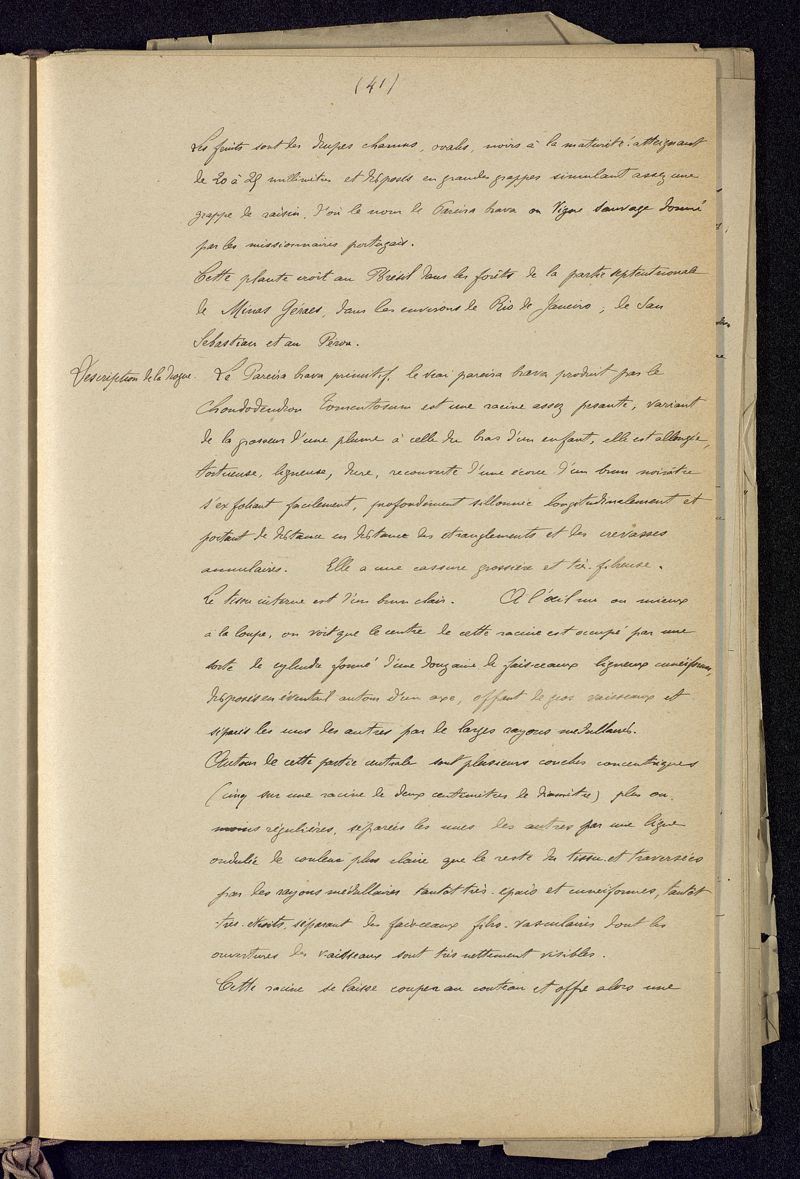 (41)
Les fruits sont des drupes charnus, ovales, noirs à la maturité. atteignant
de 20 à 25 millimètres et disposés en grandes grappes simulant assez une
grappe de raisin, d'où le nom de Pareira brava ou Vigne sauvage donné
par les missionnaires portugais.
Cette plante croit au Brésil dans les forêts de la partie septentrionale
de Minas Géraes, dans les environs de Rio de Janeiro, de San
Sebastian et au Perou.
Description de la drogue. Le Pareira brava primitif, le vrai pareira brava produit par le
Chondodendron Tomentosum est une racine assez pesante, variant
de la grosseur d'une plume à celle du bras d'un enfant, elle est allongée,
tortueuse, ligneuse, dure, recouverte d'une écorce d'un brun noirâtre
s'exfoliant facilement, profondément sillonnée longitudinalement et
portant de distance en distance des étranglements et des crevasses
annulaires. Elle a une cassure grossière et très-fibreuse.
Le tissu interne est d'un brun clair. A l'œil nu ou mieux
à la loupe, on voit que le centre de cette racine est occupé par une
sorte de cylindre formé d'une douzaine de faisceaux ligneux cuneiformes,
disposés en éventail autour d'un axe, offrant de gros vaisseaux et
séparés les uns des autres par de larges rayons médullaires.
Autour de cette partie centrale sont plusieurs couches concentriques
(cinq sur une racine de deux centimètres de diamètre) plus ou
moins régulières, séparées les unes des autres par une ligne
ondulée de couleur plus claire que le reste du tissu et traversées
par des rayons médullaires tantôt très-épais et cuneiformes, tantôt
très-étroits, séparant des faisceaux fibro-vasculaires dont les
ouvertures des vaisseaux sont très nettement visibles.
Cette racine se laisse couper au couteau et offre alors une